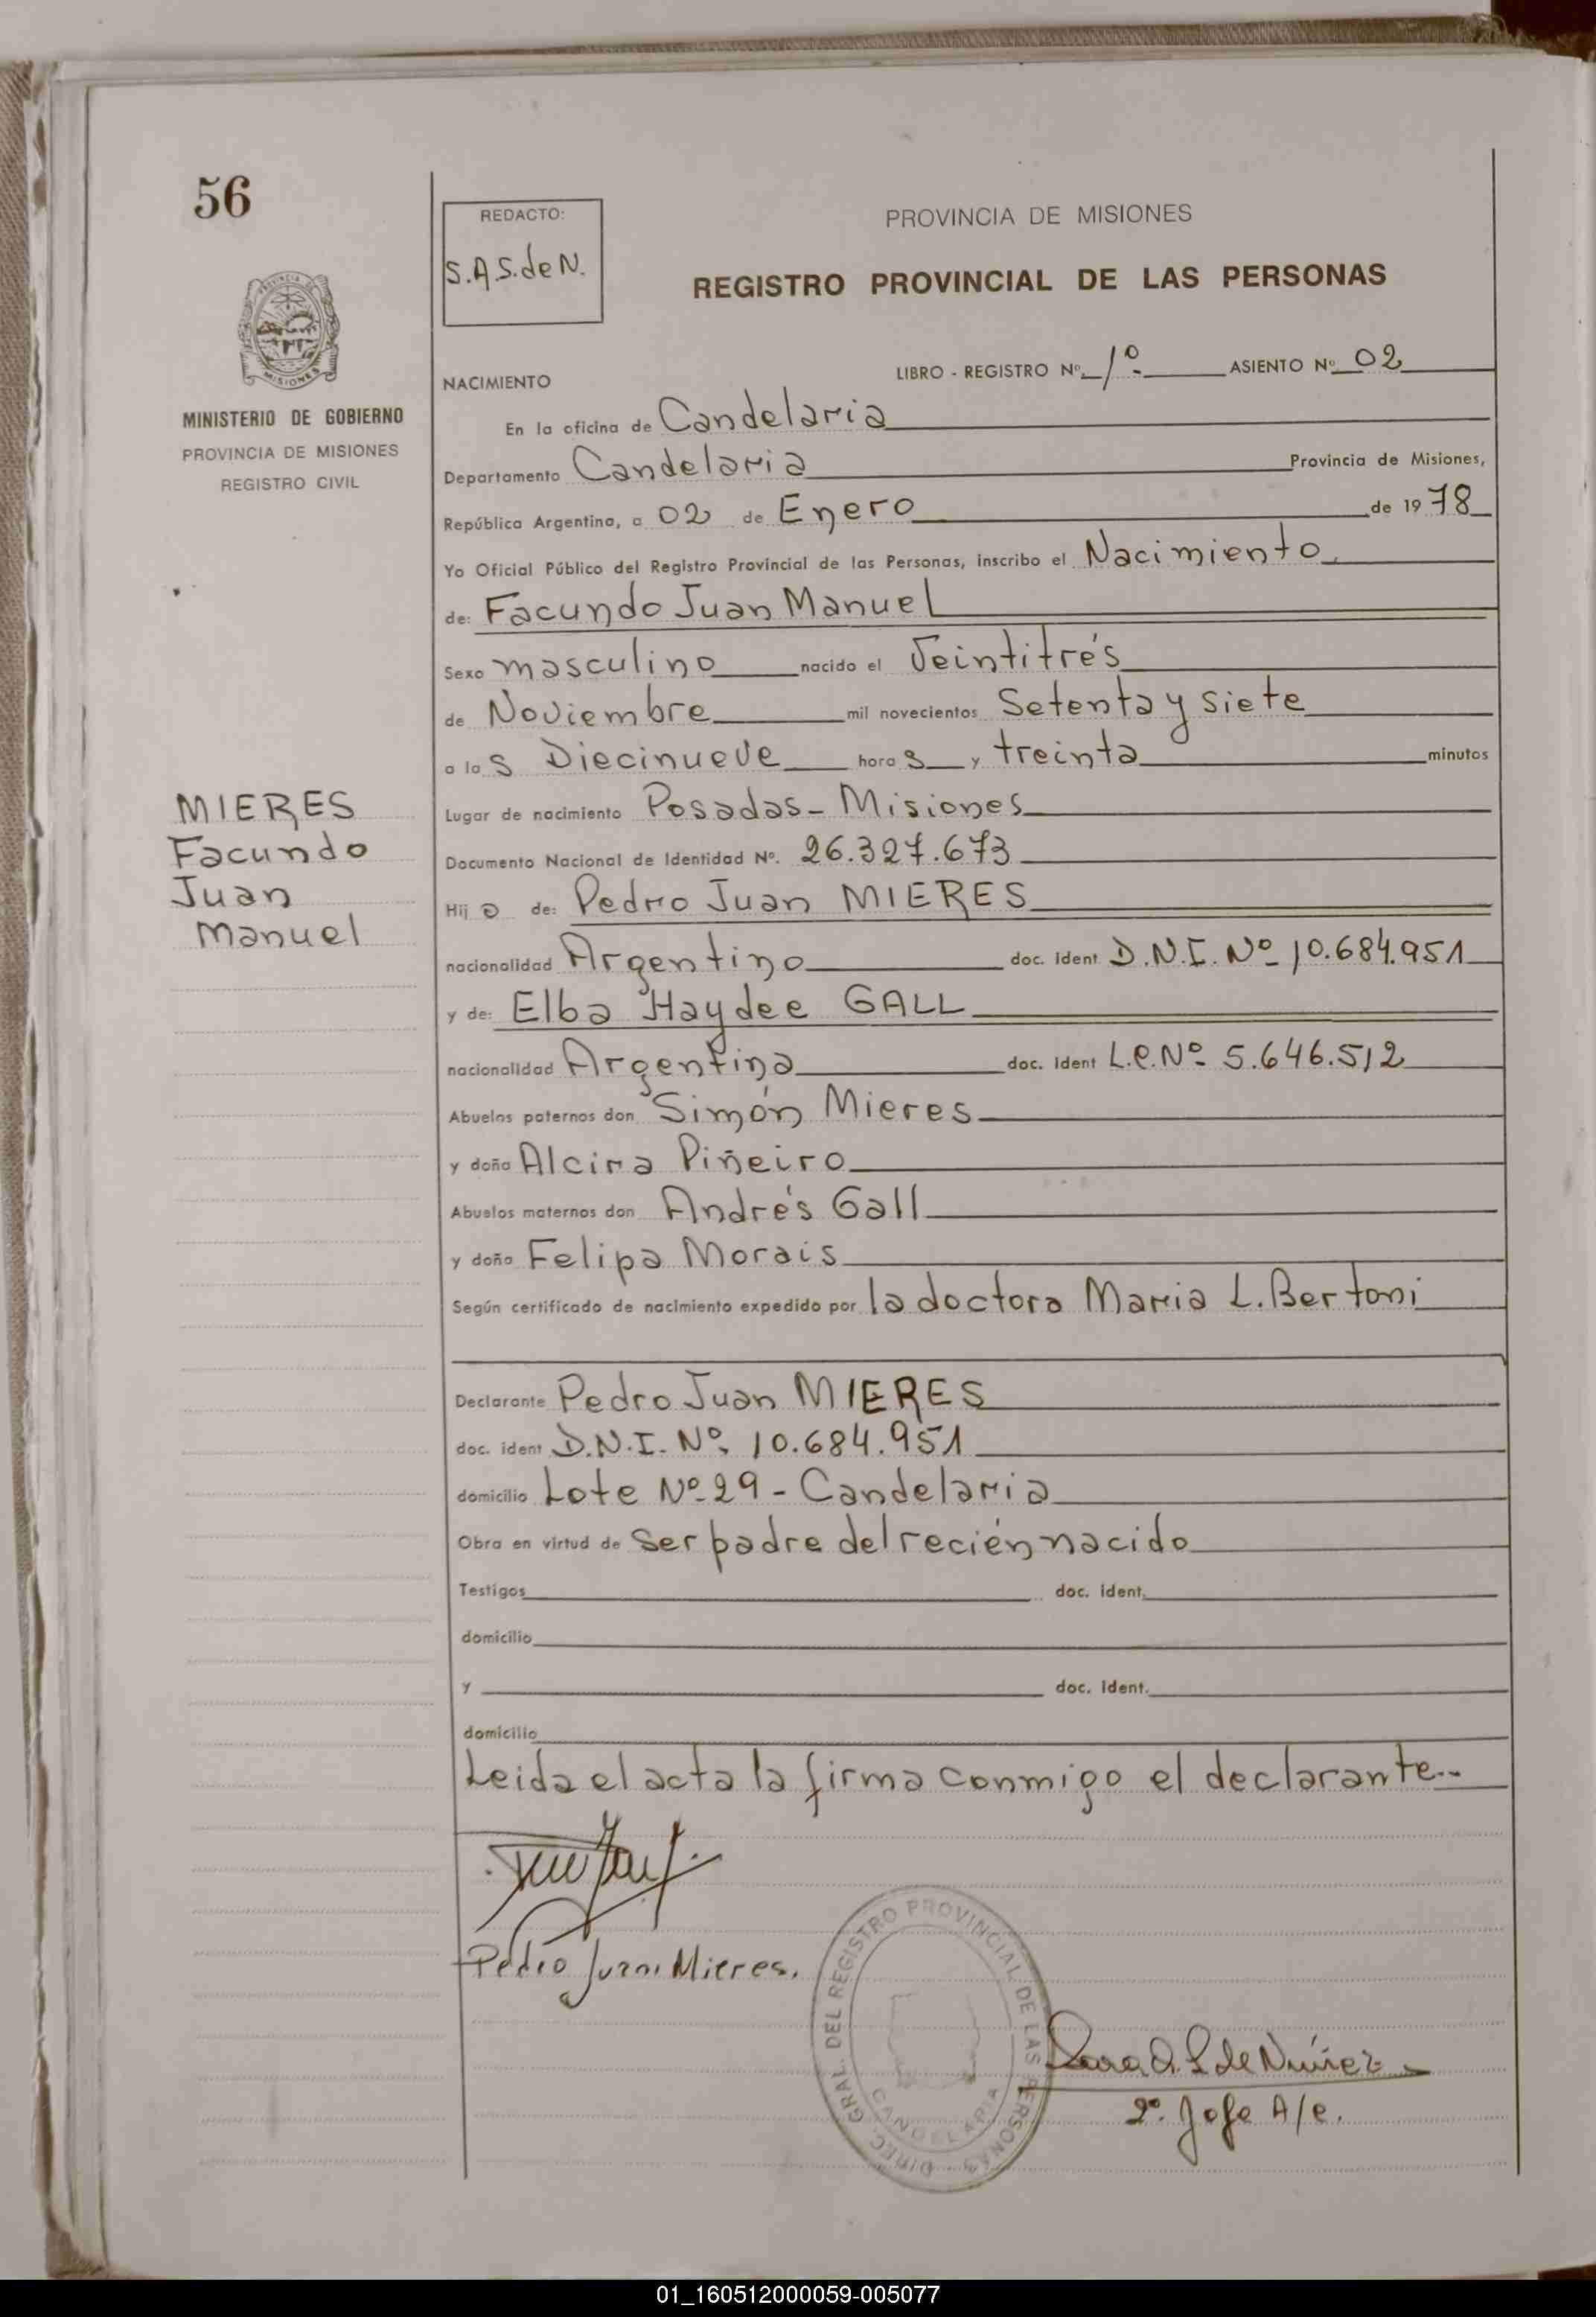 56
REDACTO:
S.A.S. de N.
PROVINCIA DE MISIONES
REGISTRO PROVINCIAL DE LAS PERSONAS
PROVINCIA DE MISIONES
MINISTERIO DE GOBIERNO
PROVINCIA DE MISIONES
REGISTRO CIVIL
NACIMIENTO
LIBRO - REGISTRO Nº 1º ASIENTO Nº 02
En la oficina de Candelaria
Departamento Candelaria Provincia de Misiones,
República Argentina, a 02 de Enero de 1978
Yo Oficial Público del Registro Provincial de las Personas, inscribo el Nacimiento
de: Facundo Juan Manuel
Sexo masculino nacido el Veintitrés
de Noviembre mil novecientos Setenta y siete
a las Diecinueve horas y treinta minutos
MIERES
Facundo
Juan
Manuel
Lugar de nacimiento Posadas - Misiones
Documento Nacional de Identidad Nº. 26.327.673
Hijo de: Pedro Juan MIERES
nacionalidad Argentino doc. ident D.N.I. Nº 10.684.951
y de: Elba Haydee GALL
nacionalidad Argentina doc. ident L.C. Nº 5.646.512
Abuelos paternos don Simón Mieres
y doña Alcira Piñeiro
Abuelos maternos don Andrés Gall
y doña Felipa Morais
Según certificado de nacimiento expedido por la doctora Maria L. Bertoni
Declarante Pedro Juan MIERES
doc. ident D.N.I. Nº. 10.684.951
domicilio Lote Nº 29 - Candelaria
Obra en virtud de ser padre del recién nacido
Testigos doc. ident.
domicilio
y doc. ident.
domicilio
Leida el acta la firma conmigo el declarante..
Pedro Juan Mieres.
DIREC. GRAL. DEL REGISTRO PROVINCIAL DE LAS PERSONAS
CANDELARIA
Sara A. S. de Núñez
2º. Jefe A/c.
01_160512000059-005077